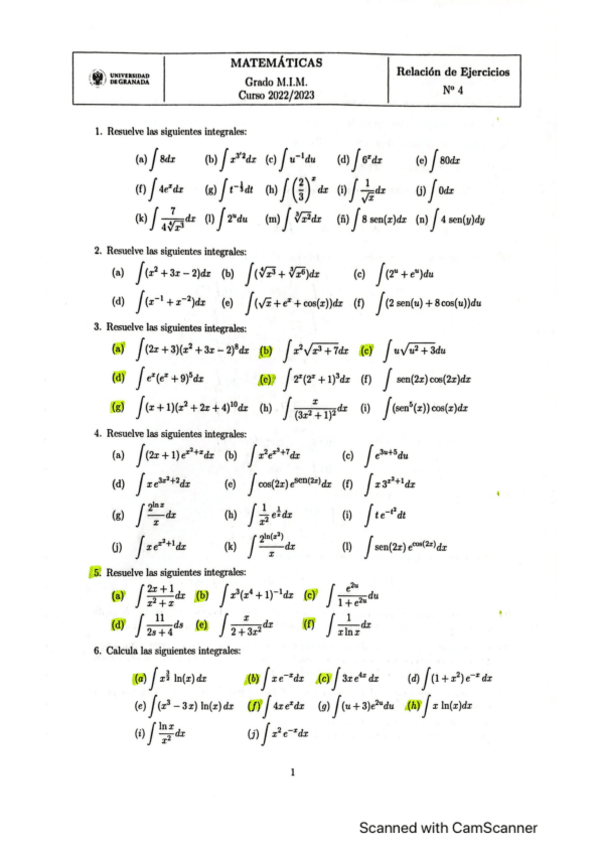 UNIVERSIDAD
DE GRANADA
MATEMÁTICAS
Grado M.I.M.
Curso 2022/2023
Relación de Ejercicios
Nº 4
1. Resuelve las siguientes integrales:
(a) ∫ 8dx (b) ∫ x^{3/2}dx (c) ∫ u^{-1}du (d) ∫ 6^x dx (e) ∫ 80dx
(f) ∫ 4e^x dx (g) ∫ t^{-1/2}dt (h) ∫ (2/3)^x dx (i) ∫ 1/√x dx (j) ∫ 0dx
(k) ∫ 7/(4∜x³) dx (l) ∫ 2^u du (m) ∫ ∛x² dx (ñ) ∫ 8 sen(x)dx (n) ∫ 4 sen(y)dy
2. Resuelve las siguientes integrales:
(a) ∫(x² + 3x − 2)dx (b) ∫(∜x³ + ∛x⁶)dx (c) ∫(2^u + e^u)du
(d) ∫(x^{-1} + x^{-2})dx (e) ∫(√x + e^x + cos(x))dx (f) ∫(2 sen(u) + 8 cos(u))du
3. Resuelve las siguientes integrales:
(a) ∫(2x + 3)(x² + 3x − 2)⁸dx (b) ∫ x²√(x³ + 7)dx (c) ∫ u√(u² + 3)du
(d) ∫ e^x(e^x + 9)⁵dx (e) ∫ 2^x(2^x + 1)³dx (f) ∫ sen(2x) cos(2x)dx
(g) ∫(x + 1)(x² + 2x + 4)^{10}dx (h) ∫ x/(3x² + 1)² dx (i) ∫(sen⁵(x)) cos(x)dx
4. Resuelve las siguientes integrales:
(a) ∫(2x + 1) e^{x²+x}dx (b) ∫ x²e^{x³+7}dx (c) ∫ e^{3u+5}du
(d) ∫ x e^{3x²+2}dx (e) ∫ cos(2x) e^{sen(2x)}dx (f) ∫ x 3^{x²+1}dx
(g) ∫ 2^{ln x}/x dx (h) ∫ 1/x² e^{1/x}dx (i) ∫ t e^{-t²}dt
(j) ∫ x e^{x²+1}dx (k) ∫ 2^{ln(x²)}/x dx (l) ∫ sen(2x) e^{cos(2x)}dx
5. Resuelve las siguientes integrales:
(a) ∫ (2x + 1)/(x² + x) dx (b) ∫ x³(x⁴ + 1)^{-1}dx (c) ∫ e^{2u}/(1 + e^{2u}) du
(d) ∫ 11/(2s + 4) ds (e) ∫ x/(2 + 3x²) dx (f) ∫ 1/(x ln x) dx
6. Calcula las siguientes integrales:
(a) ∫ x^{3/2} ln(x) dx (b) ∫ x e^{-x}dx (c) ∫ 3x e^{4x} dx (d) ∫(1 + x²) e^{-x} dx
(e) ∫(x³ − 3x) ln(x) dx (f) ∫ 4x e^x dx (g) ∫(u + 3)e^{2u}du (h) ∫ x ln(x)dx
(i) ∫ ln x/x² dx (j) ∫ x² e^{-x}dx
1
Scanned with CamScanner